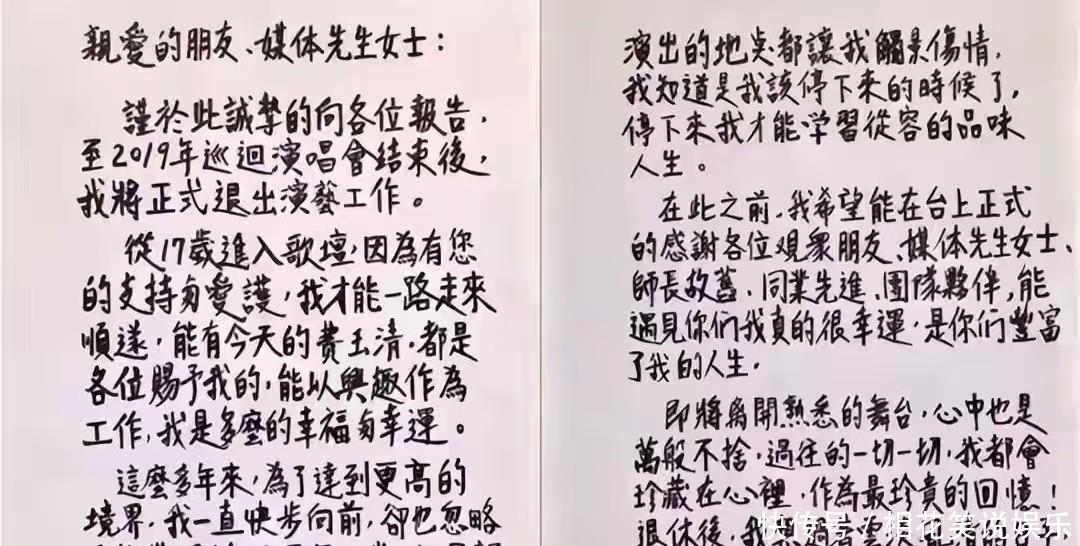 親愛的朋友、媒体先生女士：
謹於此誠摯的向各位報告，
至2019年巡迴演唱會結束後，
我將正式退出演藝工作。
從17歲進入歌壇，因為有您
的支持與愛護，我才能一路走來
順遂，能有今天的費玉清，都是
各位賜予我的，能以興趣作為
工作，我是多麼的幸福與幸運。
這麼多年來，為了達到更高的
境界，我一直快步向前，卻也忽略
演出的地點都讓我觸景傷情，
我知道是我該停下來的時候了，
停下來我才能学習從容的品味
人生。
在此之前，我希望能在台上正式
的感謝各位观眾朋友、媒体先生女士、
師長故舊、同業先進、團隊夥伴，能
遇見你們我真的很幸運，是你們豐富
了我的人生。
即將离開熟悉的舞台，心中也是
萬般不捨，過往的一切一切，我都會
珍藏在心裡，作為最珍貴的回憶！
退休後，我
快传号/相花笑说娱乐